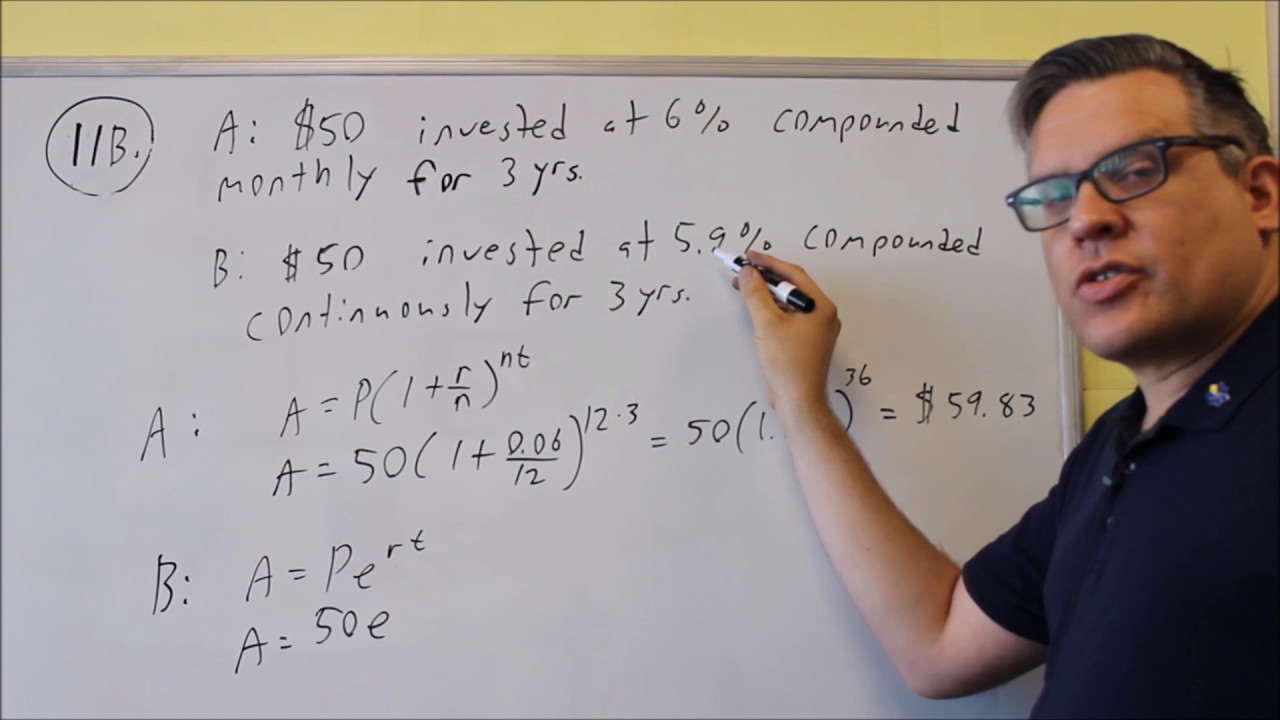 11B.
A: $50 invested at 6% compounded
monthly for 3 yrs.
B: $50 invested at 5.9% compounded
continuously for 3 yrs.
A: A = P(1 + r/n)^nt
A = 50(1 + 0.06/12)^12·3 = 50(1. )^36 = $59.83
B: A = Pe^rt
A = 50e